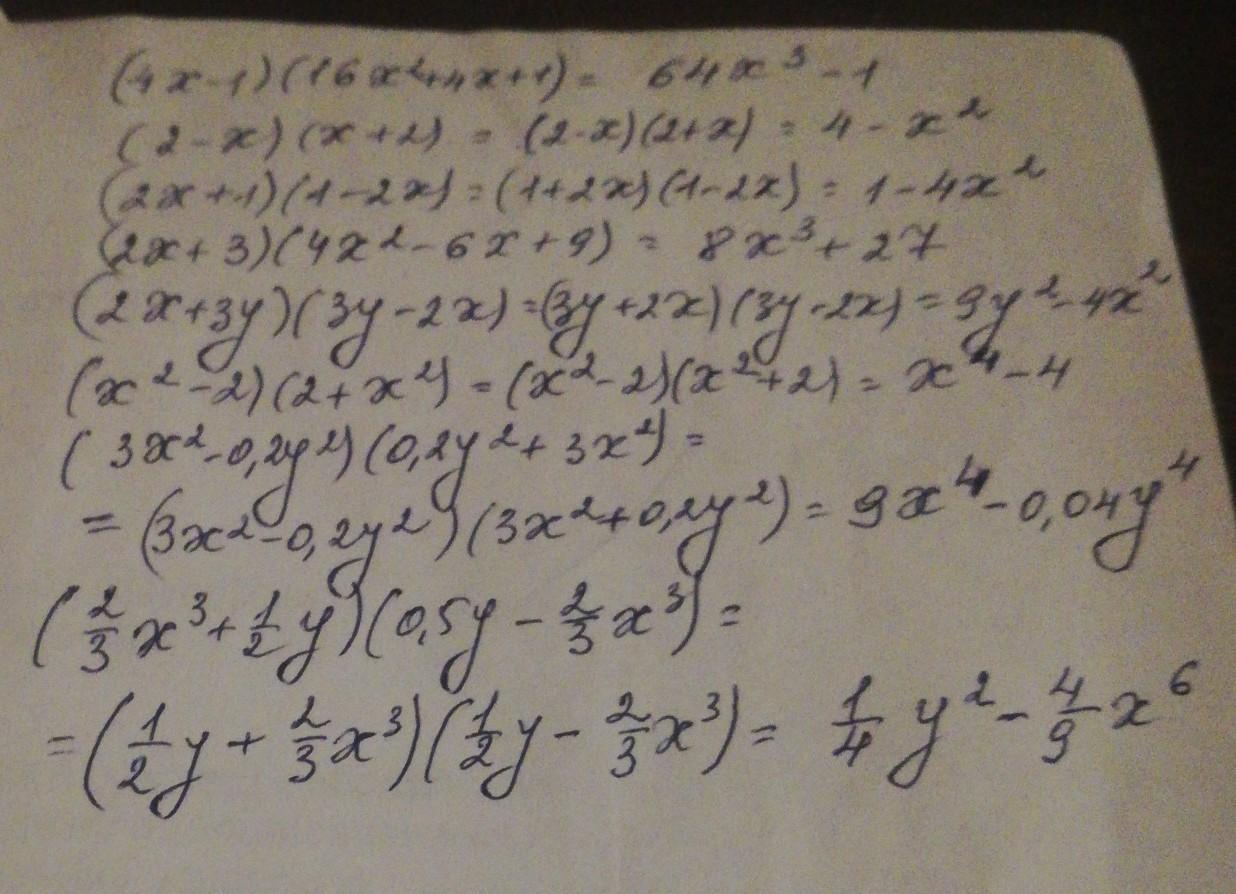 (4x-1)(16x²+4x+1) = 64x³-1
(2-x)(x+2) = (2-x)(2+x) = 4-x²
(2x+1)(1-2x) = (1+2x)(1-2x) = 1-4x²
(2x+3)(4x²-6x+9) = 8x³+27
(2x+3y)(3y-2x) = (3y+2x)(3y-2x) = 9y²-4x²
(x²-2)(2+x²) = (x²-2)(x²+2) = x⁴-4
(3x²-0,2y²)(0,2y²+3x²) =
= (3x²-0,2y²)(3x²+0,2y²) = 9x⁴-0,04y⁴
(2/3 x³ + 1/2 y)(0,5y - 2/3 x³) =
= (1/2 y + 2/3 x³)(1/2 y - 2/3 x³) = 1/4 y² - 4/9 x⁶